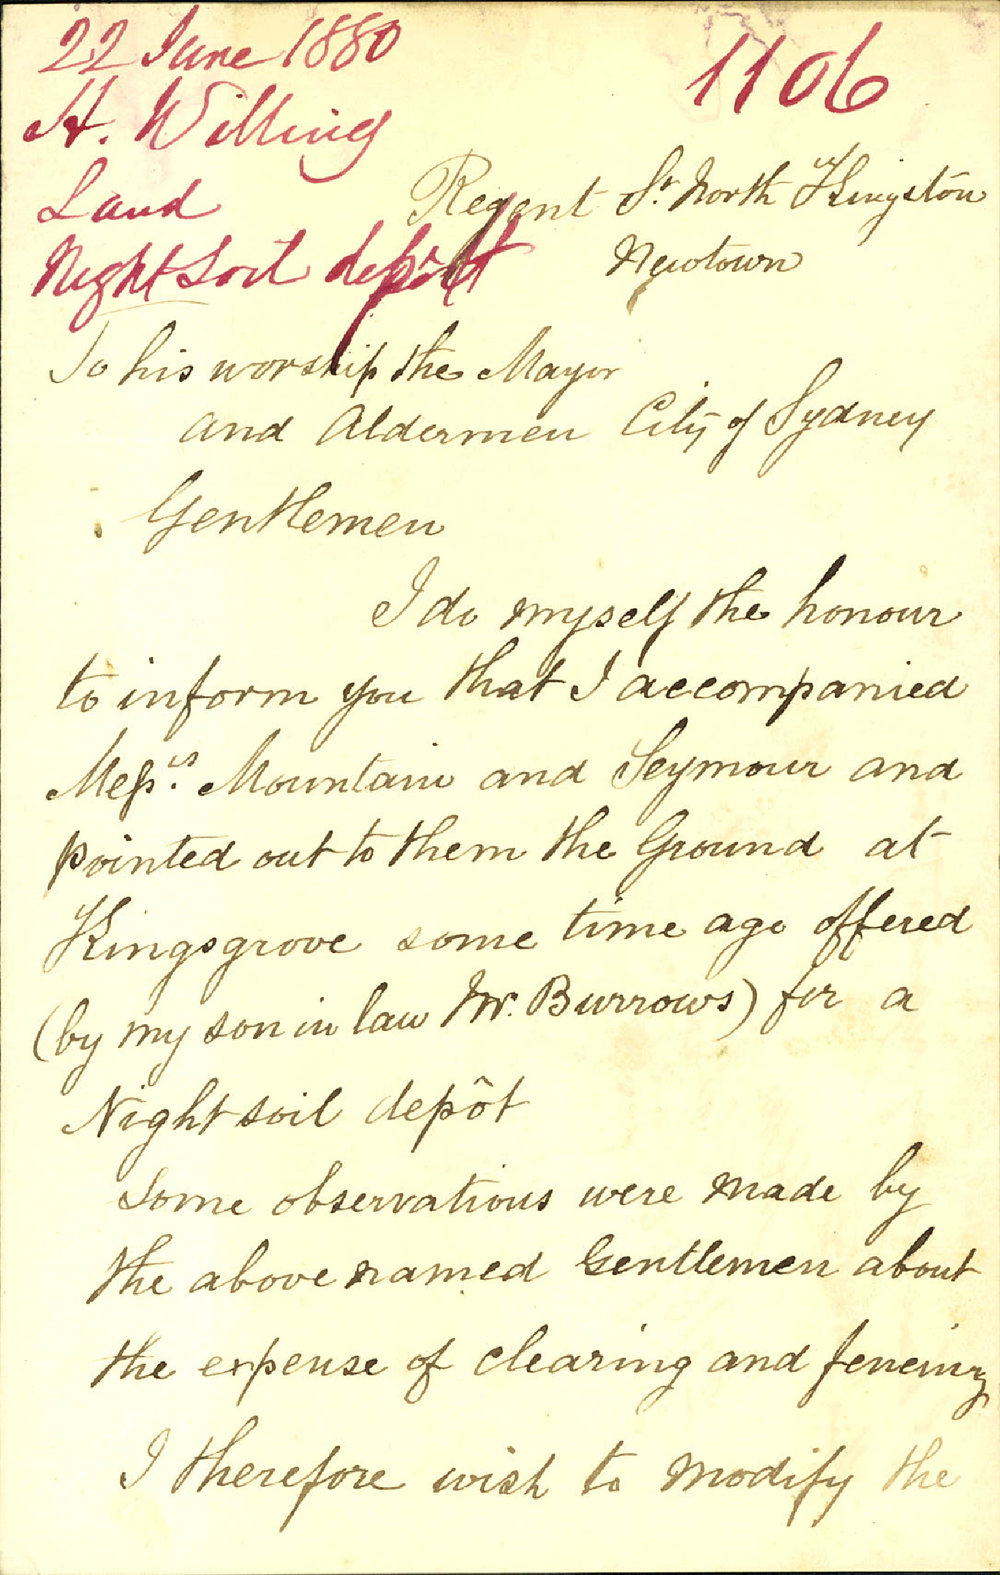 22 June 1880
1106
H. Willing
Land
Night Soil depôt
Regent St. North Kingston
Newtown
To his worship the Mayor
and Aldermen City of Sydney
Gentlemen
I do myself the honour
to inform you that I accompanied
Messrs. Mountain and Seymour and
pointed out to them the Ground at
Kingsgrove some time ago offered
(by my son in law Mr. Burrows) for a
Night soil depôt
Some observations were made by
the above named Gentlemen about
the expense of clearing and fencing
I therefore wish to modify the